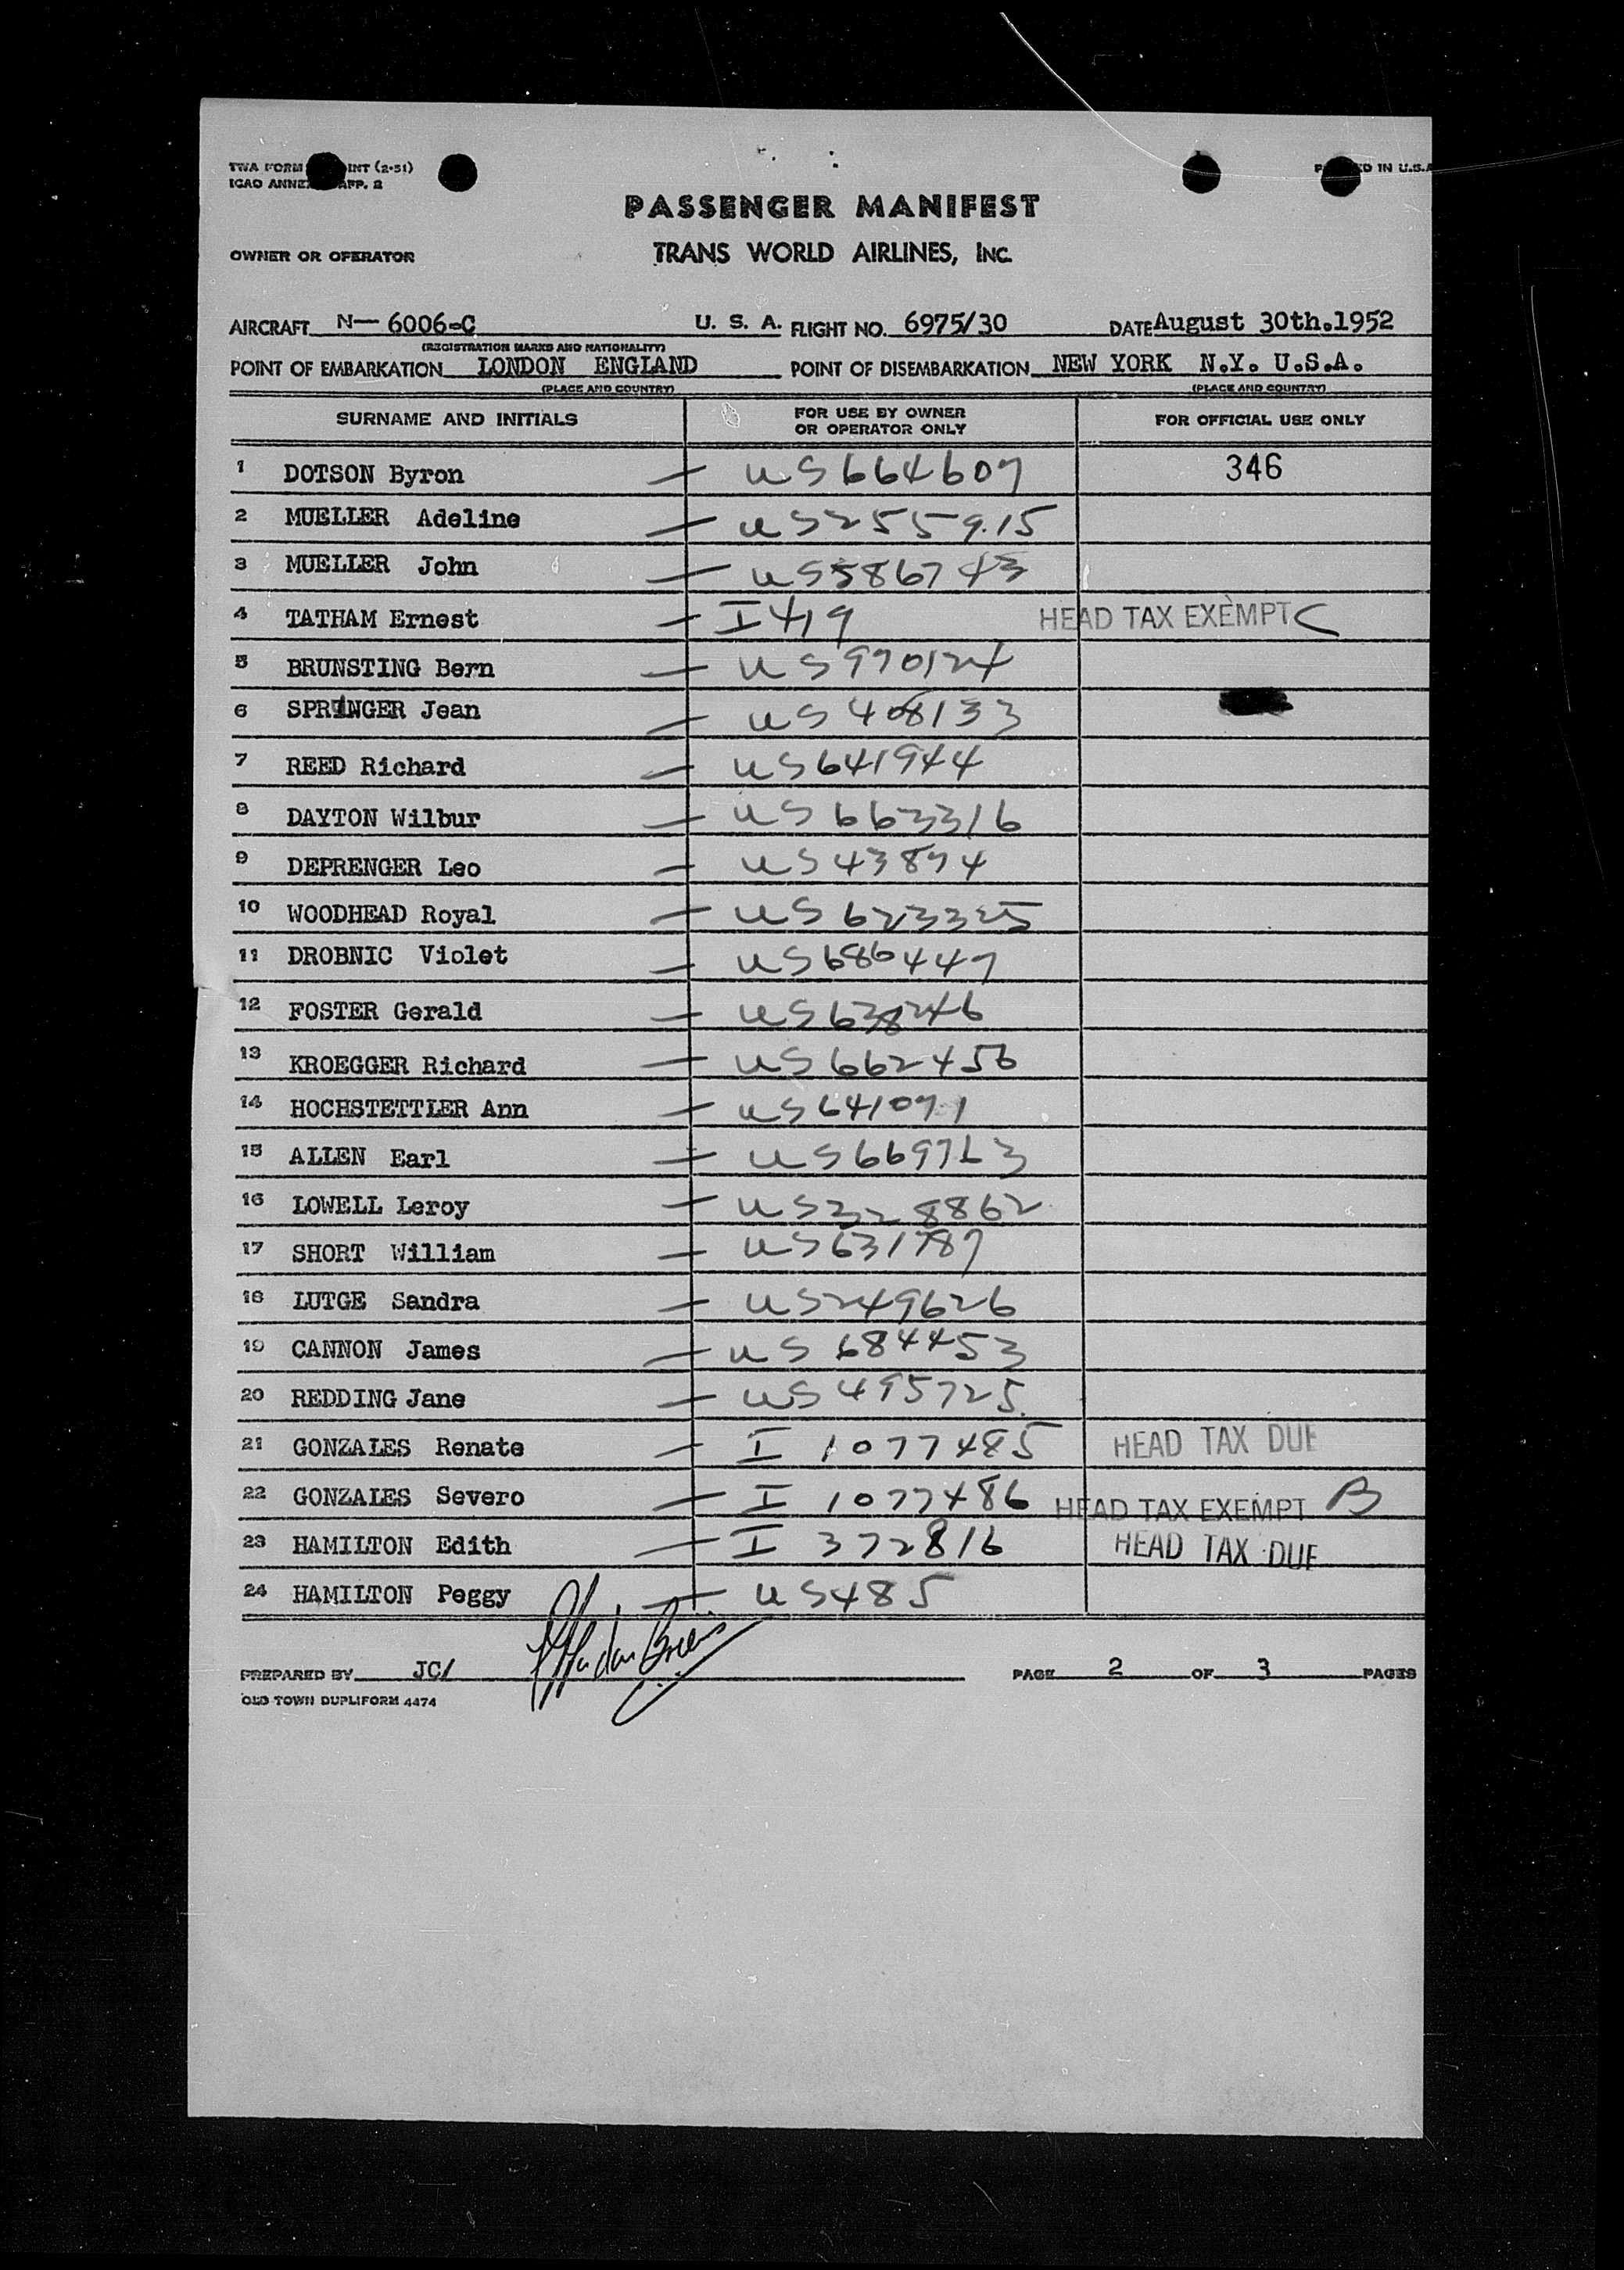 TWA FORM INT (2-51)
ICAO ANNEX APP. 2
D IN U.S.A
PASSENGER MANIFEST
OWNER OR OPERATOR TRANS WORLD AIRLINES, INC.
AIRCRAFT N— 6006-C U. S. A. FLIGHT NO. 6975/30 DATE August 30th.1952
(REGISTRATION MARKS AND NATIONALITY)
POINT OF EMBARKATION LONDON ENGLAND POINT OF DISEMBARKATION NEW YORK N.Y. U.S.A.
(PLACE AND COUNTRY) (PLACE AND COUNTRY)
SURNAME AND INITIALS FOR USE BY OWNER OR OPERATOR ONLY FOR OFFICIAL USE ONLY
1 DOTSON Byron — US 664607 346
2 MUELLER Adeline — US 255915
3 MUELLER John — US 586743
4 TATHAM Ernest — I 419 HEAD TAX EXEMPT C
5 BRUNSTING Bern — US 970124
6 SPRINGER Jean — US 408133
7 REED Richard — US 641944
8 DAYTON Wilbur — US 663316
9 DEPRENGER Leo — US 43874
10 WOODHEAD Royal — US 623325
11 DROBNIC Violet — US 686447
12 FOSTER Gerald — US 638246
13 KROEGGER Richard — US 662456
14 HOCHSTETTLER Ann — US 641071
15 ALLEN Earl — US 669763
16 LOWELL Leroy — US 328862
17 SHORT William — US 631787
18 LUTGE Sandra — US 249626
19 CANNON James — US 684453
20 REDDING Jane — US 495725
21 GONZALES Renate — I 1077485 HEAD TAX DUE
22 GONZALES Severo — I 1077486 HEAD TAX EXEMPT B
23 HAMILTON Edith — I 372816 HEAD TAX DUE
24 HAMILTON Peggy — US 485
PREPARED BY JC/ PAGE 2 OF 3 PAGES
OLD TOWN DUPLIFORM 4474